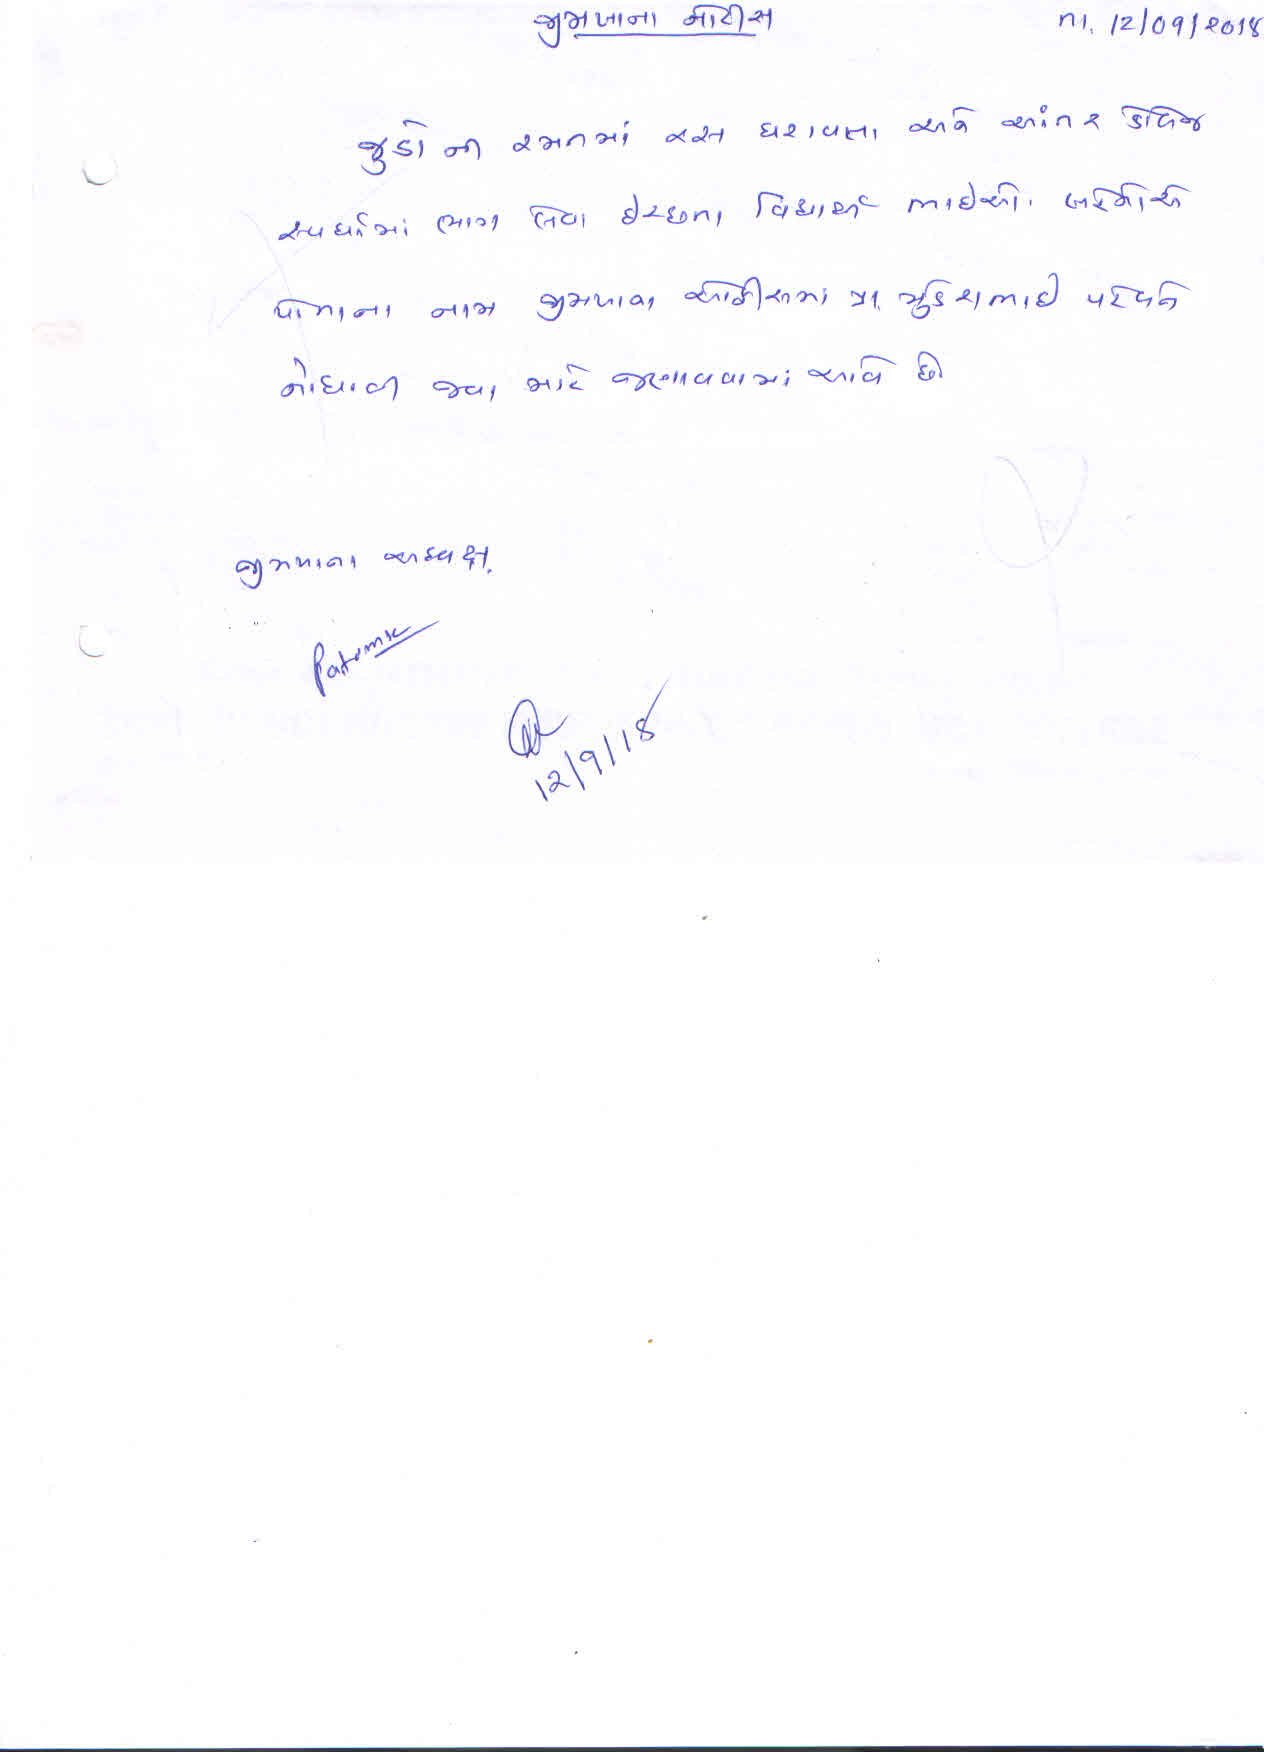 જીમખાના નોટીસ
તા. 12/09/2018
જુડો ની રમતમાં રસ ધરાવતા અને આંતર કોલેજ
સ્પર્ધામાં ભાગ લેવા ઈચ્છતા વિદ્યાર્થી ભાઈઓ
પોતાના નામ જીમખાના ઓફીસમાં પ્રા. મુકેશભાઈ પટેલને
નોંધાવી જવા માટે જણાવવામાં આવે છે
જીમખાના અધ્યક્ષ.
12/9/18